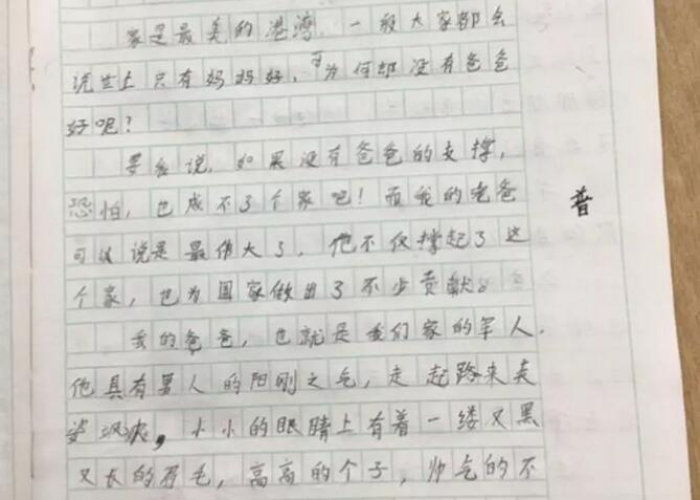 家是最美的港湾，一般大家都会
说世上只有妈妈好，可为何却没有爸爸
好呢？
要我说，如果没有爸爸的支撑，
恐怕，也成不了个家吧！而我的老爸
可以说是最伟大了，他不仅撑起了这
个家，也为国家做出了不少贡献。
我的爸爸，也就是我们家的军人．
他具有男人的阳刚之气，走起路来英
姿飒爽，小小的眼睛上有着一缕又黑
又长的眉毛，高高的个子，帅气的不
普